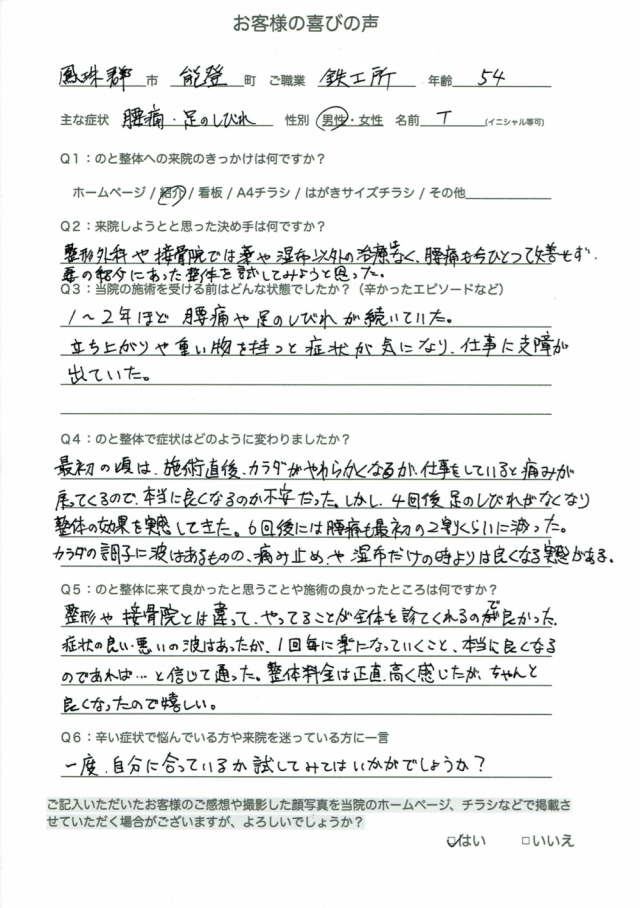 お客様の喜びの声
鳳珠郡 市 能登 町 ご職業 鉄工所 年齢 54
主な症状 腰痛・足のしびれ 性別 男性・女性 名前 T (イニシャル等可)
Q1：のと整体への来院のきっかけは何ですか？
ホームページ / 紹介 / 看板 / A4チラシ / はがきサイズチラシ / その他
Q2：来院しようとと思った決め手は何ですか？
整形外科や接骨院では薬や湿布以外の治療もなく、腰痛も今ひとつ改善せず、
妻の紹介にあった整体を試してみようと思った。
Q3：当院の施術を受ける前はどんな状態でしたか？（辛かったエピソードなど）
1～2年ほど 腰痛や足のしびれが続いていた。
立ち上がりや重い物を持つと症状が気になり、仕事に支障が
出ていた。
Q4：のと整体で症状はどのように変わりましたか？
最初の頃は、施術直後、カラダがやわらかくなるが、仕事をしていると痛みが
戻ってくるので、本当に良くなるのか不安だった。しかし、4回後 足のしびれがなくなり
整体の効果を実感してきた。6回後には腰痛も最初の2割くらいに減った。
カラダの調子に波はあるものの、痛み止め、や 湿布だけの時よりは良くなる実感がある。
Q5：のと整体に来て良かったと思うことや施術の良かったところは何ですか？
整形や接骨院とは違って、やってることが全体を診てくれるので良かった。
症状の良い悪いの波はあったが、1回毎に楽になっていくこと、本当に良くなる
のであれば…と信じて通った。整体料金は正直、高く感じたが、ちゃんと
良くなったので嬉しい。
Q6：辛い症状で悩んでいる方や来院を迷っている方に一言
一度、自分に合っているか試してみてはいかがでしょうか？
ご記入いただいたお客様のご感想や撮影した顔写真を当院のホームページ、チラシなどで掲載さ
せていただく場合がございますが、よろしいでしょうか？
☑はい □いいえ